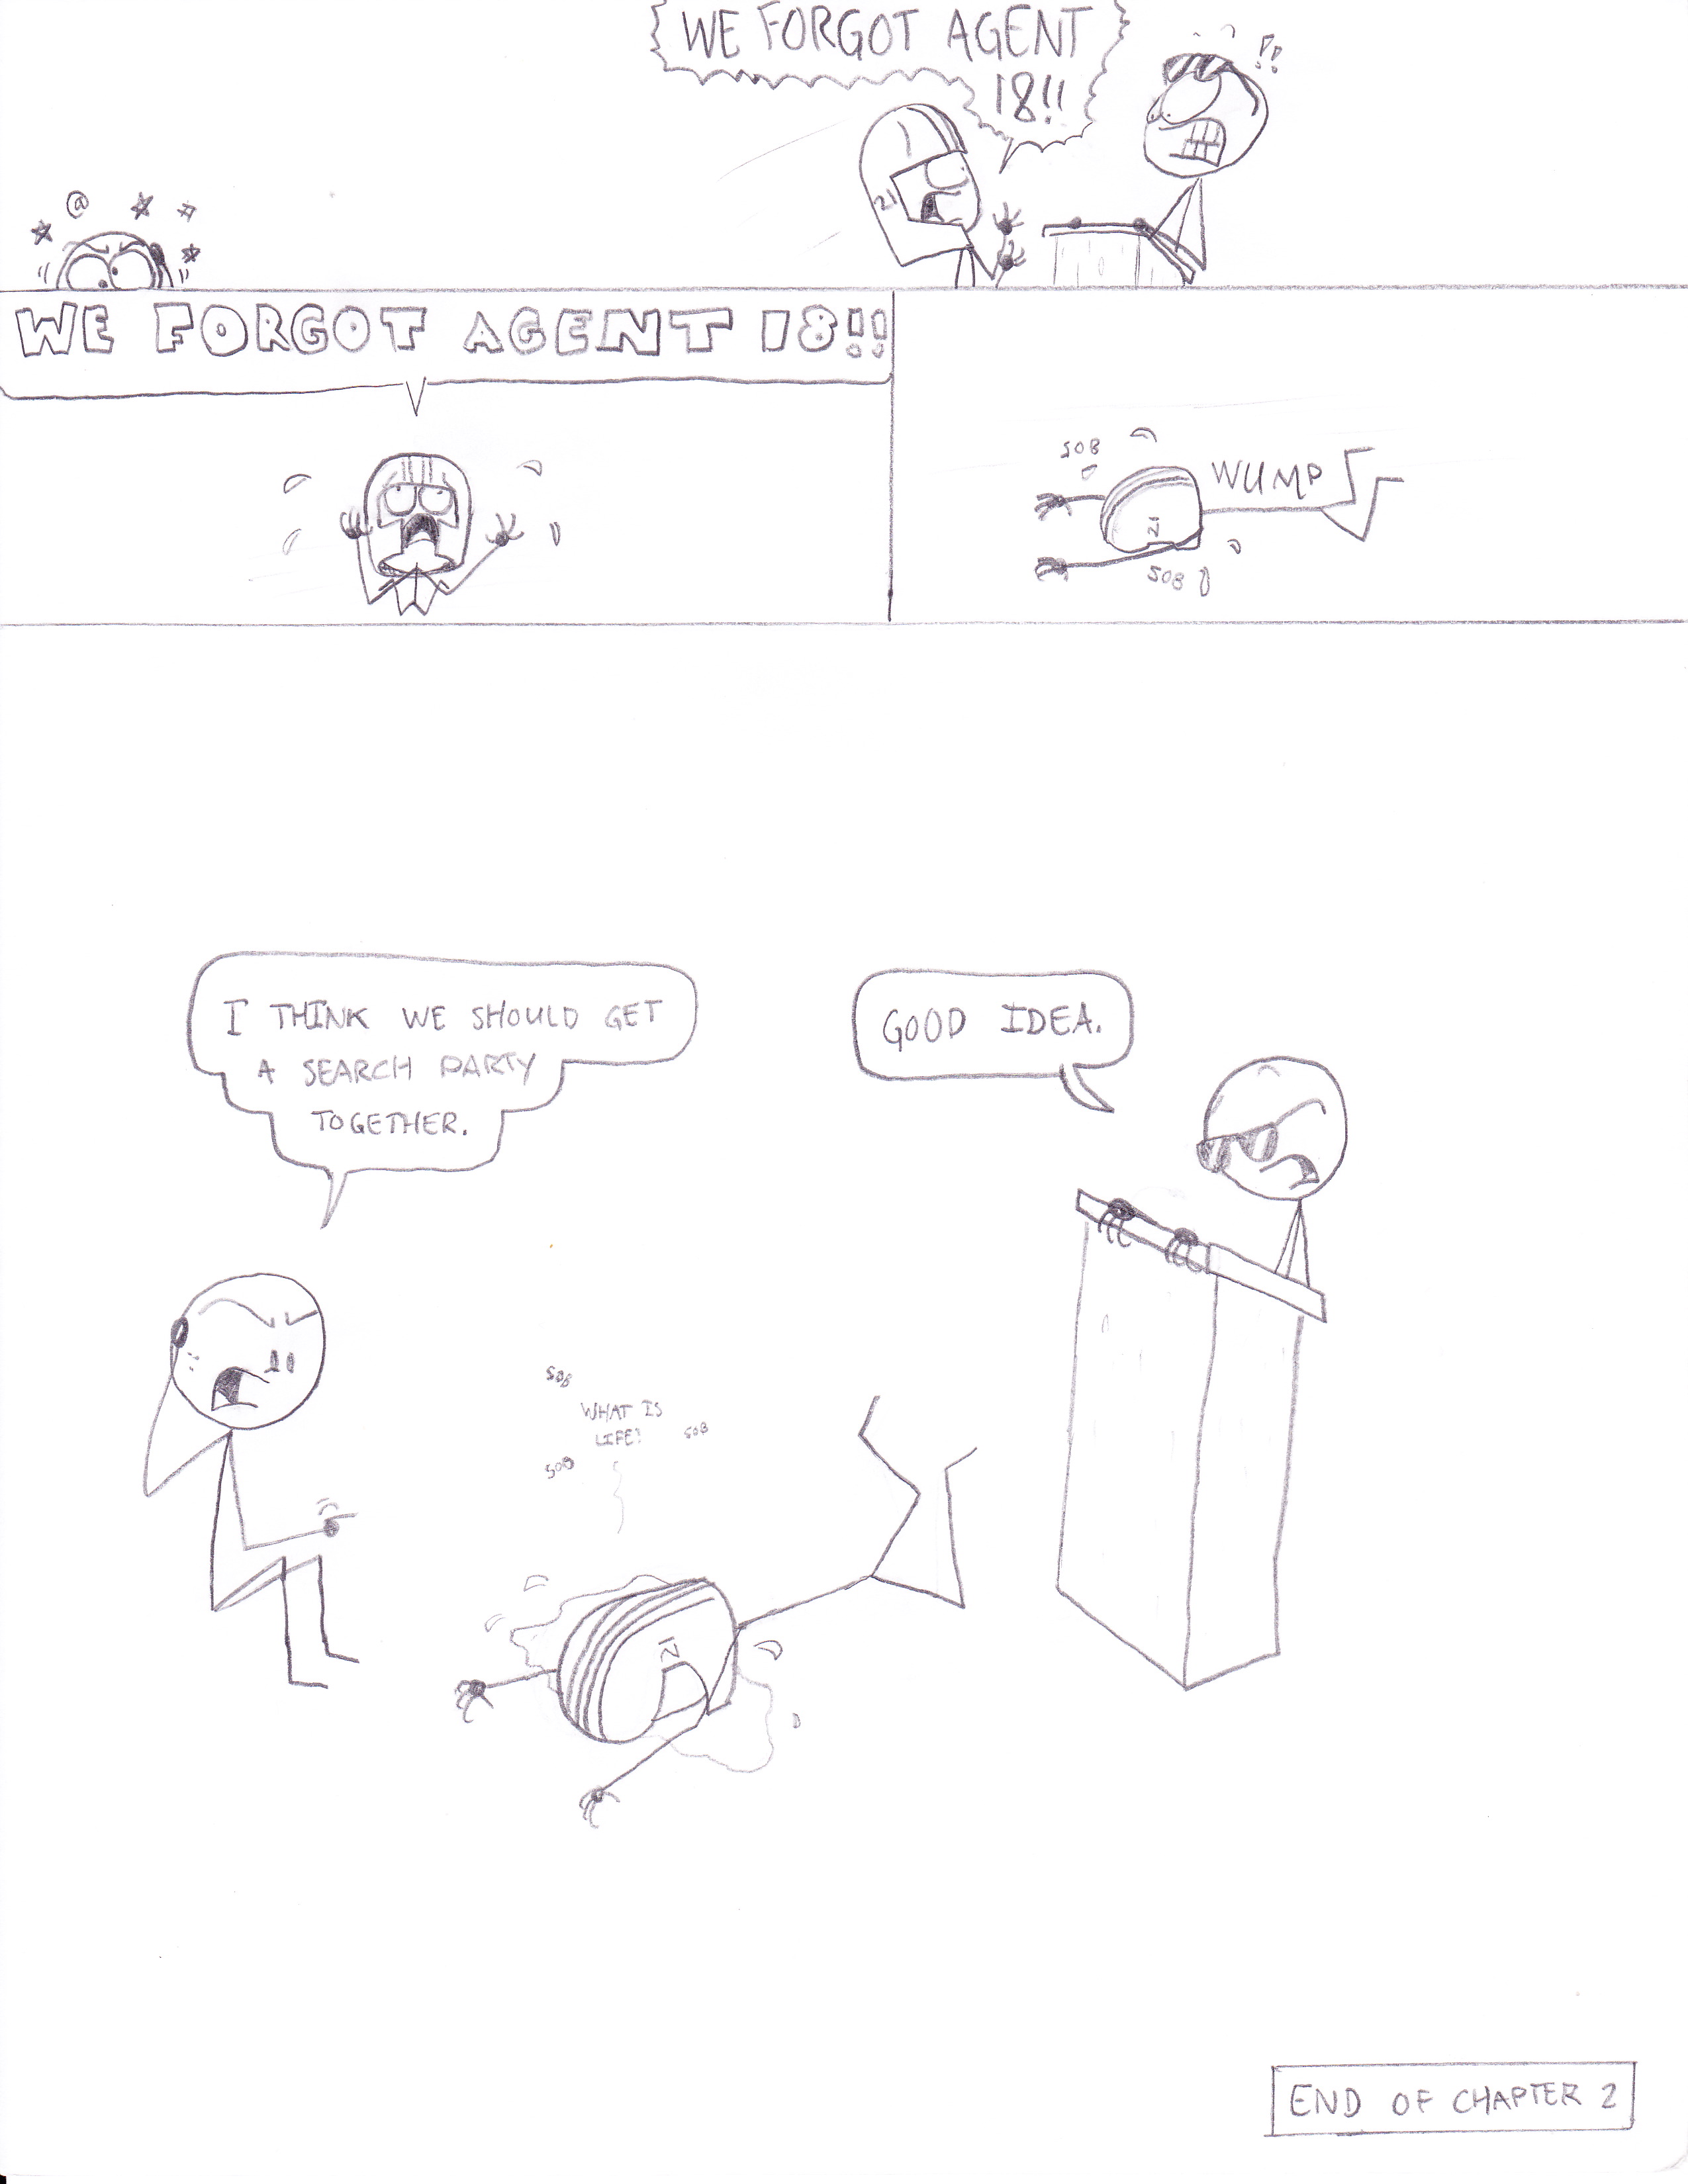 WE FORGOT AGENT
18!!
!!
21
@
WE FORGOT AGENT 18!!
SOB
WUMP
21
SOB
I THINK WE SHOULD GET
A SEARCH PARTY
TOGETHER.
GOOD IDEA.
SOB
WHAT IS
LIFE?
SOB
SOB
21
END OF CHAPTER 2